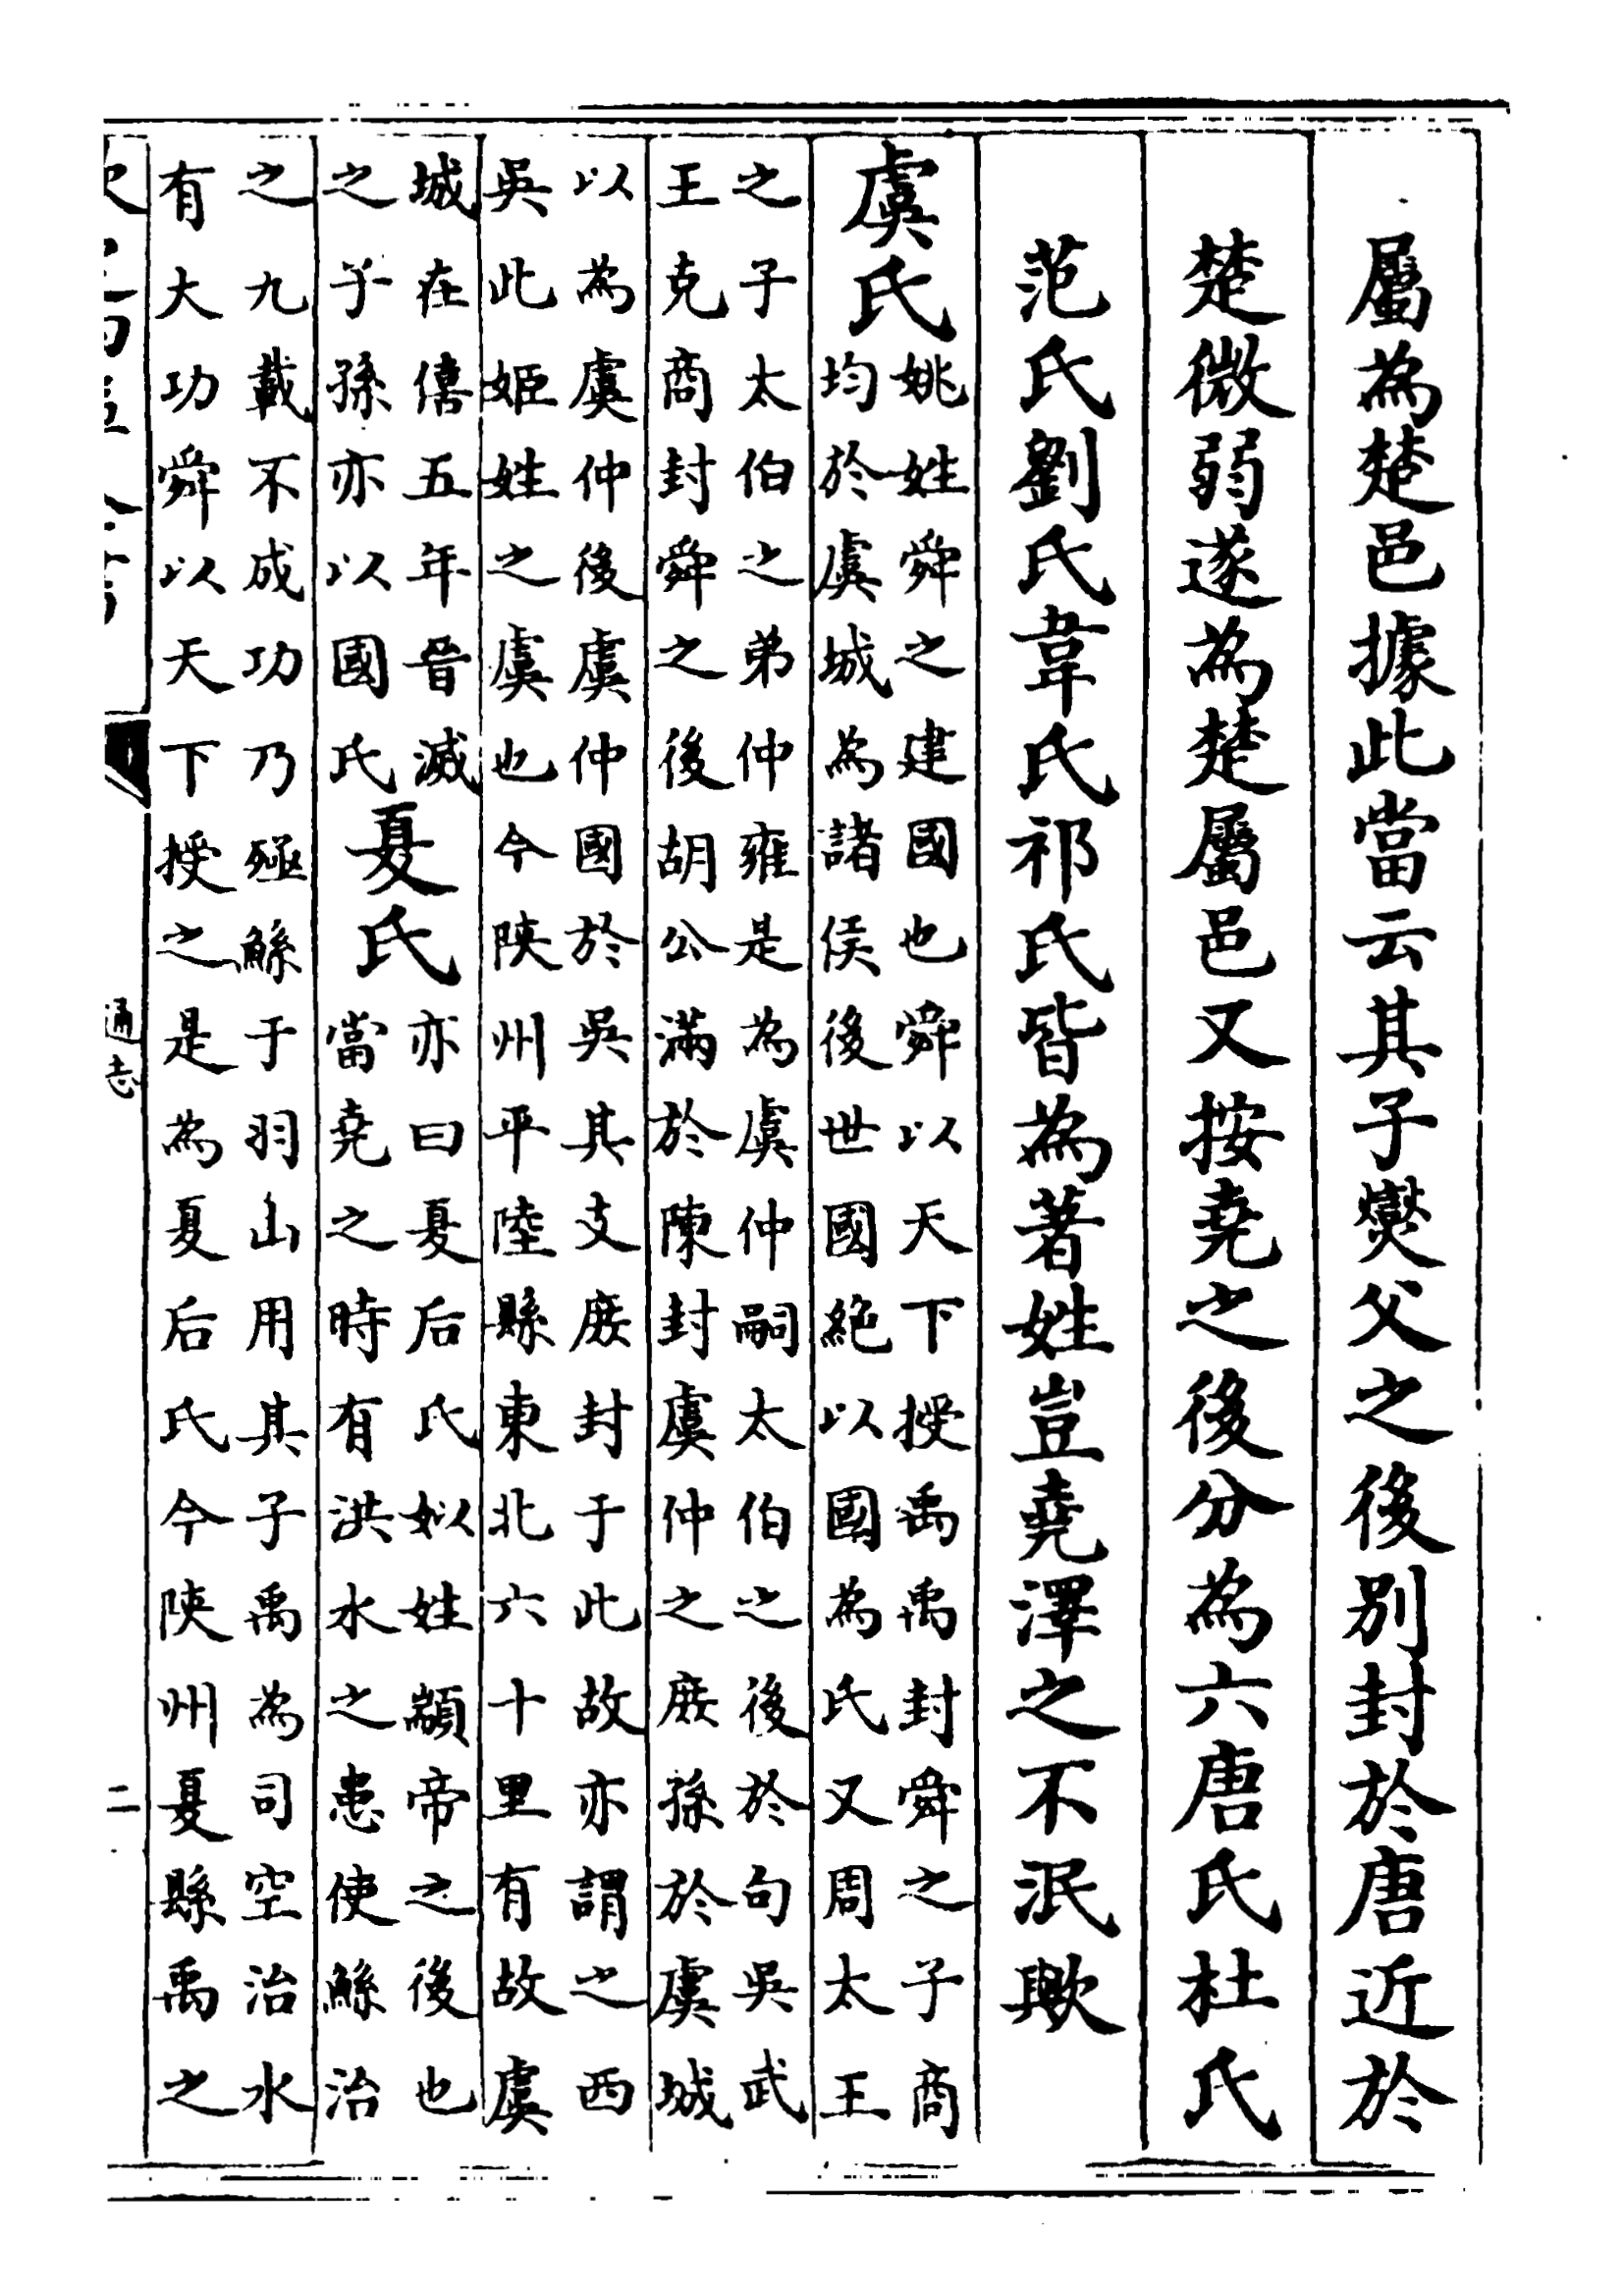 屬為楚邑據此當云其子燮父之後別封於唐近於
楚微弱遂為楚屬邑又按堯之後分為六唐氏杜氏
范氏劉氏韋氏祁氏皆為著姓豈堯澤之不泯歟
虞氏
姚姓舜之建國也舜以天下授禹禹封舜之子商
均於虞城為諸侯後世國絶以國為氏又周太王
之子太伯之弟仲雍是為虞仲嗣太伯之後於句吳武
王克商封舜之後胡公滿於陳封虞仲之庶孫於虞城
以為虞仲後虞仲國於吳其支庶封于此故亦謂之西
吳此姬姓之虞也今陝州平陸縣東北六十里有故虞
城在僖五年晉滅
之子孫亦以國氏
夏氏
亦曰夏后氏姒姓顓帝之後也
當堯之時有洪水之患使鯀治
之九載不成功乃殛鯀于羽山用其子禹為司空治水
有大功舜以天下授之是為夏后氏今陝州夏縣禹之
通志
二